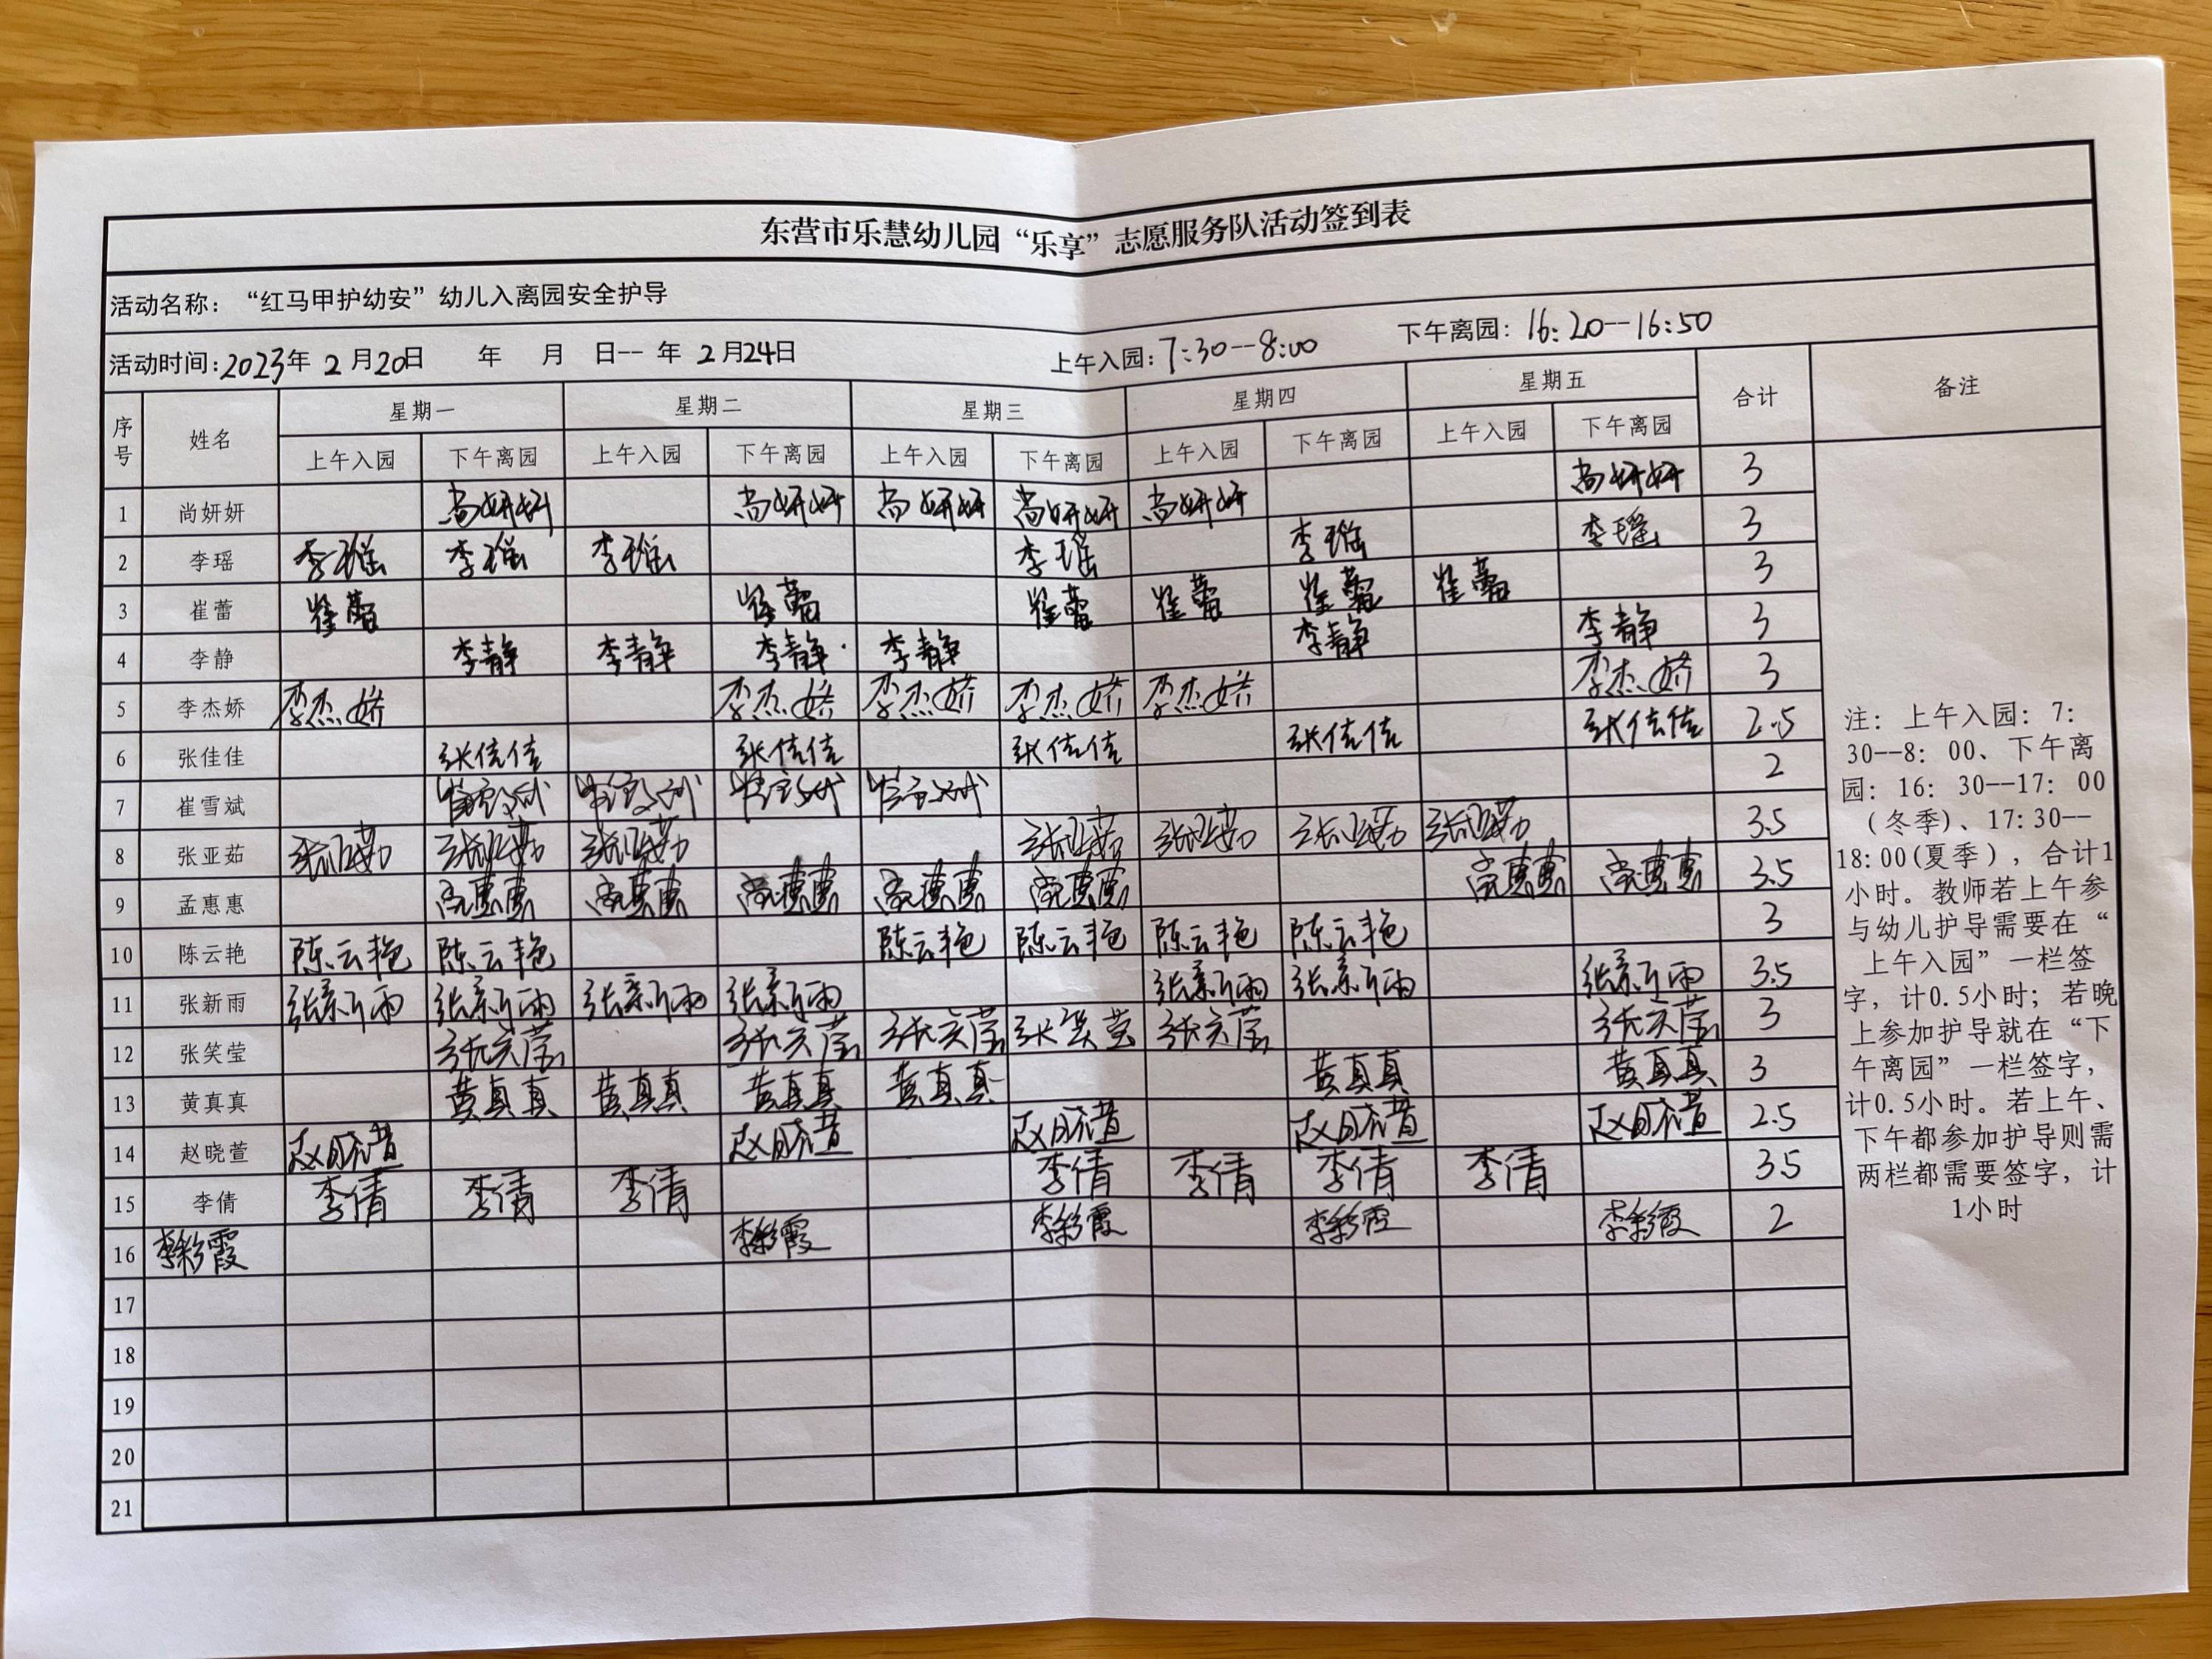 东营市乐慧幼儿园“乐享”志愿服务队活动签到表
活动名称：“红马甲护幼安”幼儿入离园安全护导
活动时间:2023年 2月20日 年 月 日-- 年 2月24日 上午入园:7:30--8:00 下午离园: 16:20--16:50
序号 姓名 星期一 星期二 星期三 星期四 星期五 合计 备注
上午入园 下午离园 上午入园 下午离园 上午入园 下午离园 上午入园 下午离园 上午入园 下午离园
1 尚妍妍 尚妍妍 尚妍妍 尚妍妍 尚妍妍 尚妍妍 尚妍妍 3
2 李瑶 李瑶 李瑶 李瑶 李瑶 李瑶 李瑶 3
3 崔蕾 崔蕾 崔蕾 崔蕾 崔蕾 崔蕾 崔蕾 3
4 李静 李静 李静 李静 李静 李静 李静 3
5 李杰娇 李杰娇 李杰娇 李杰娇 李杰娇 李杰娇 李杰娇 3
6 张佳佳 张佳佳 张佳佳 张佳佳 张佳佳 张佳佳 2.5
7 崔雪斌 崔雪斌 崔雪斌 崔雪斌 崔雪斌 2
8 张亚茹 张亚茹 张亚茹 张亚茹 张亚茹 张亚茹 张亚茹 张亚茹 3.5
9 孟惠惠 孟惠惠 孟惠惠 孟惠惠 孟惠惠 孟惠惠 孟惠惠 孟惠惠 3.5
10 陈云艳 陈云艳 陈云艳 陈云艳 陈云艳 陈云艳 陈云艳 3
11 张新雨 张新雨 张新雨 张新雨 张新雨 张新雨 张新雨 张新雨 3.5
12 张笑莹 张笑莹 张笑莹 张笑莹 张笑莹 张笑莹 张笑莹 3
13 黄真真 黄真真 黄真真 黄真真 黄真真 黄真真 黄真真 3
14 赵晓萱 赵晓萱 赵晓萱 赵晓萱 赵晓萱 赵晓萱 2.5
15 李倩 李倩 李倩 李倩 李倩 李倩 李倩 李倩 3.5
16 李彩霞 李彩霞 李彩霞 李彩霞 李彩霞 2
17
18
19
20
21
注：上午入园：7：
30--8：00、下午离
园：16：30--17：00
（冬季）、17:30--
18:00(夏季），合计1
小时。教师若上午参
与幼儿护导需要在“
上午入园”一栏签
字，计0.5小时；若晚
上参加护导就在“下
午离园”一栏签字，
计0.5小时。若上午、
下午都参加护导则需
两栏都需要签字，计
1小时